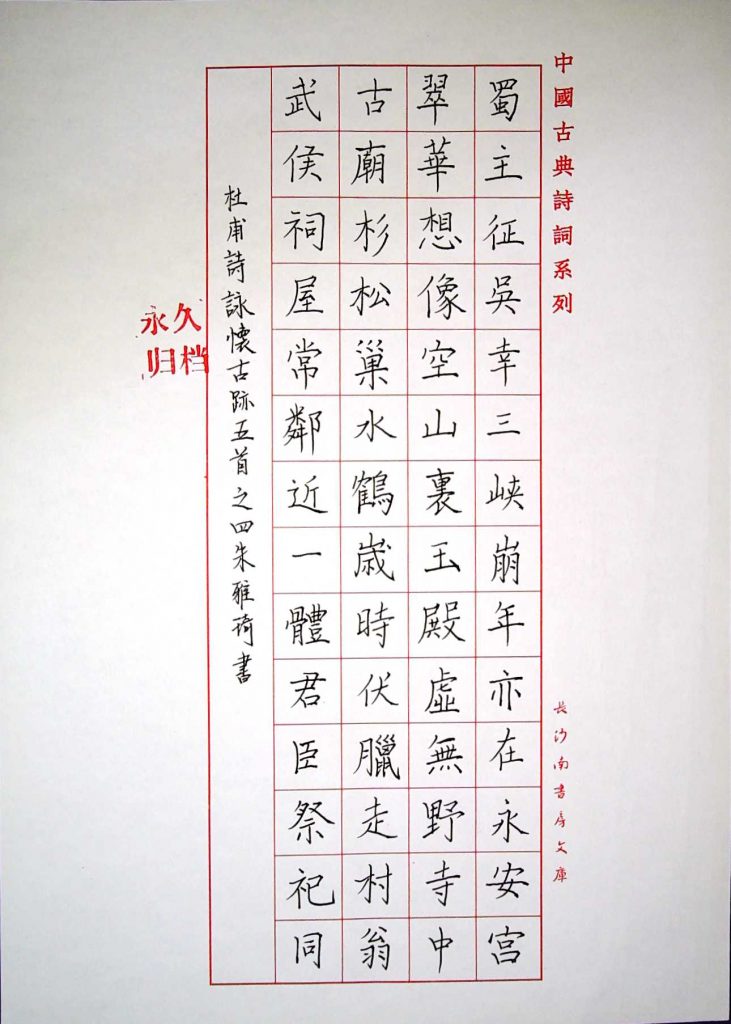 中國古典詩詞系列
蜀主征吳幸三峽崩年亦在永安宮
翠華想像空山裏玉殿虛無野寺中
古廟杉松巢水鶴歲時伏臘走村翁
武侯祠屋常鄰近一體君臣祭祀同
杜甫詩詠懷古跡五首之四朱雅琦書
長沙南書房文庫
永久
归档